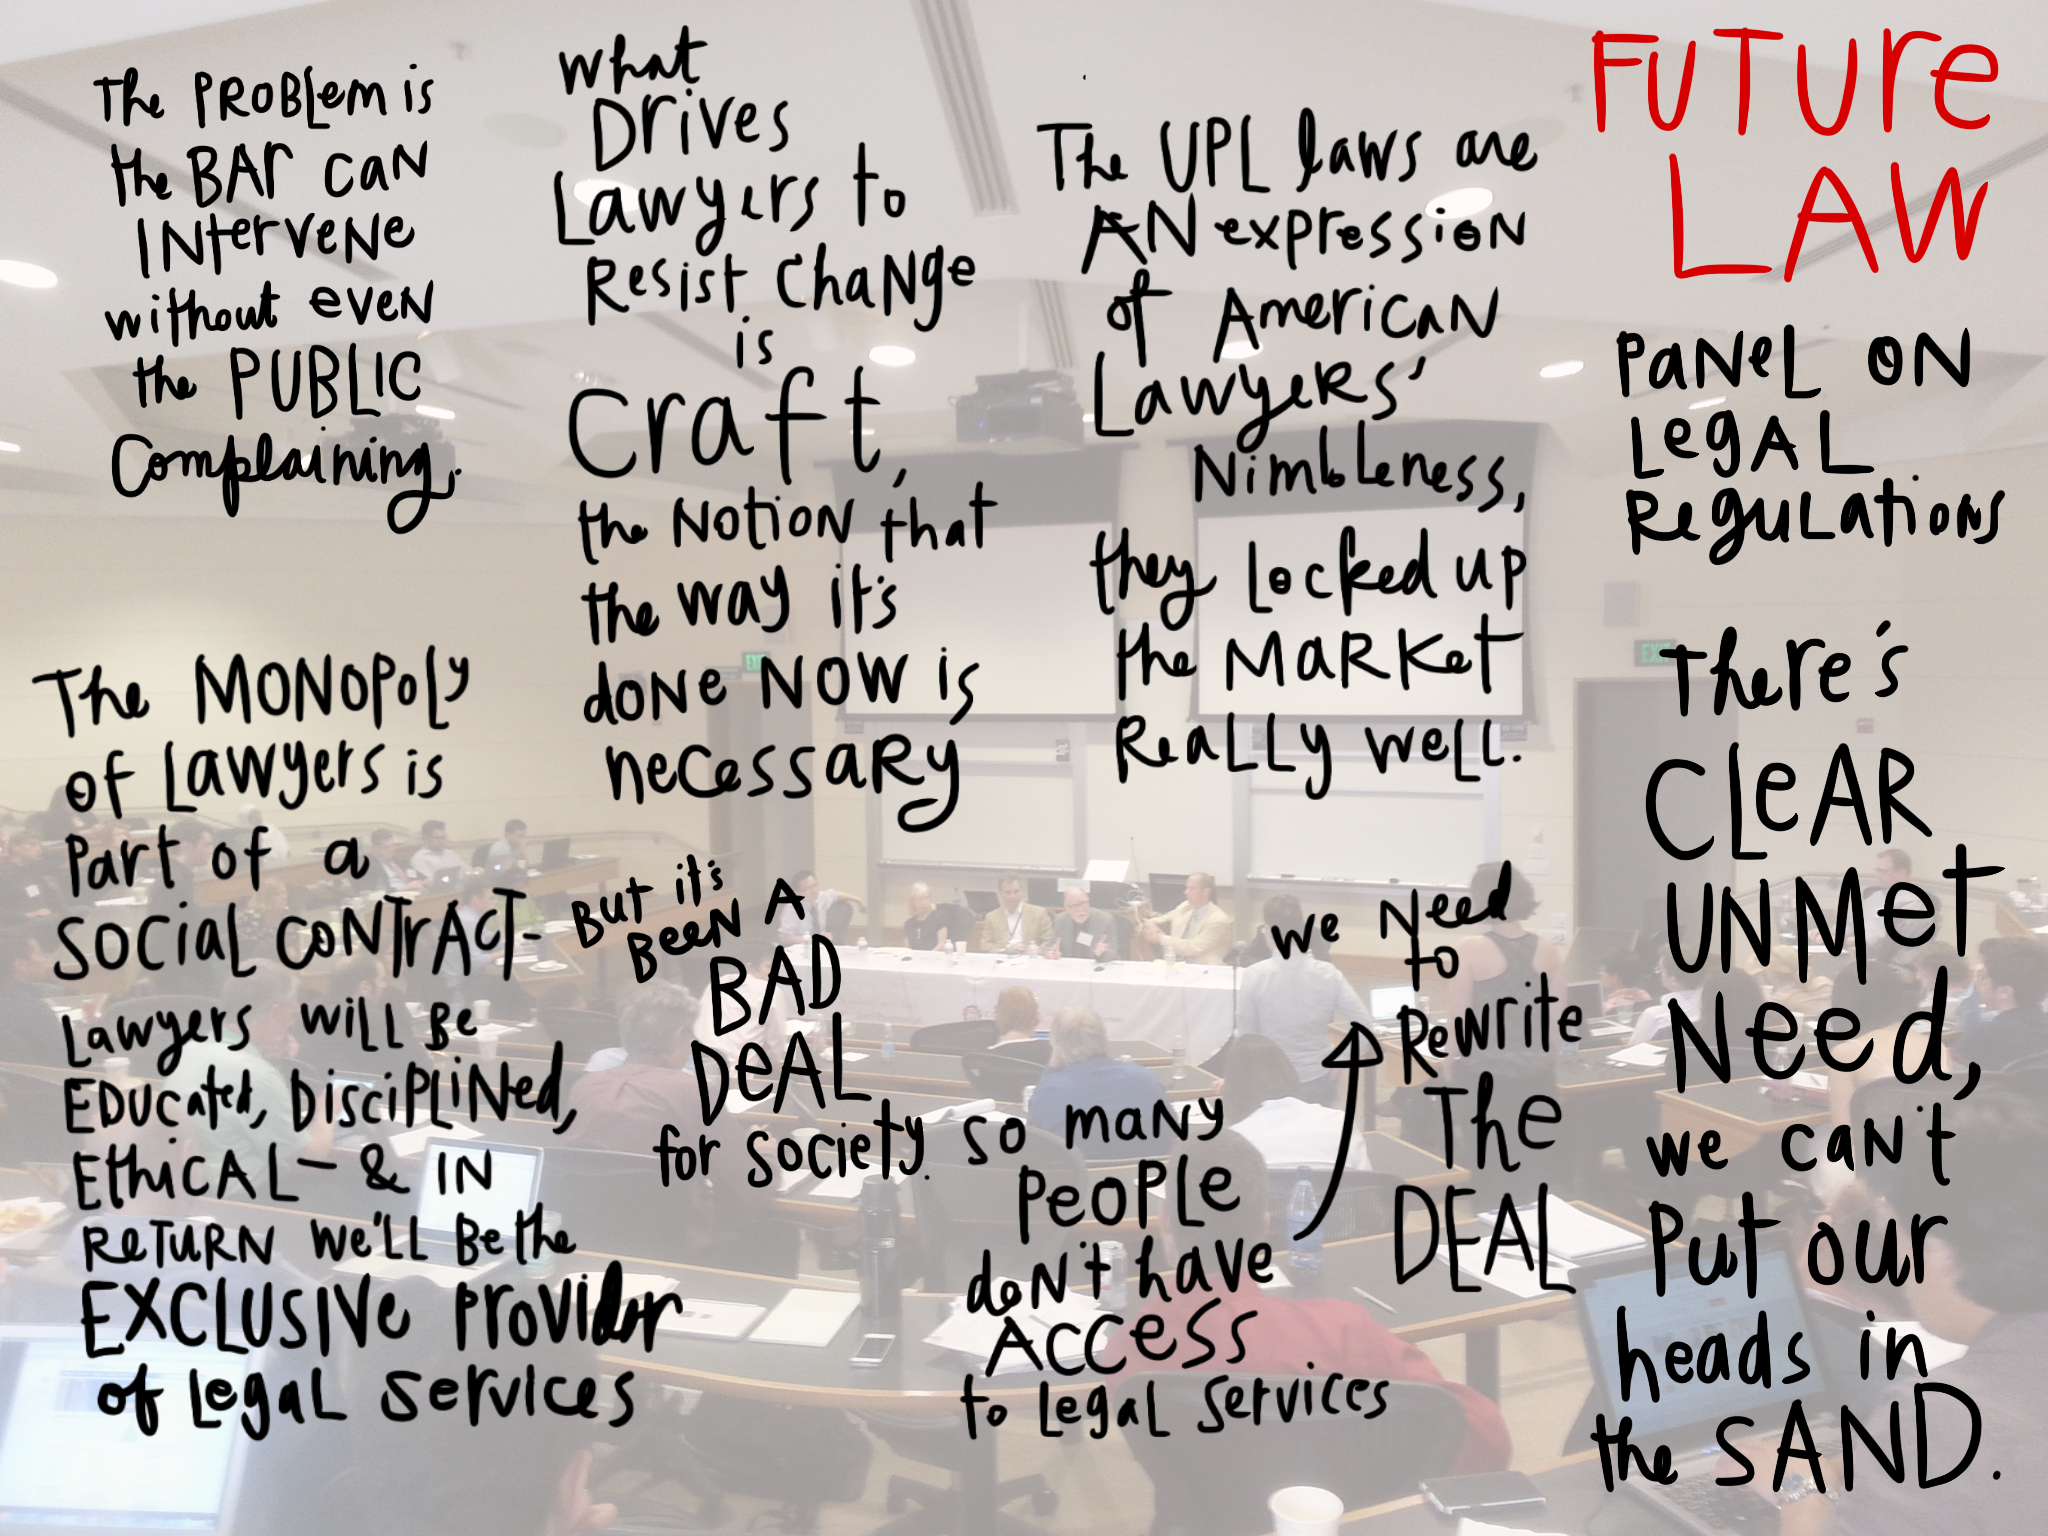 FUTURE
LAW
PANEL ON
LEGAL
REGULATIONS
The PROBLEM is
the BAR CAN
INTERVENE
without EVEN
the PUBLIC
Complaining.
What
Drives
Lawyers to
Resist Change
is
Craft,
the NOTION that
the way it's
done NOW is
necessary
The UPL laws are
AN expression
of American
Lawyers'
Nimbleness,
they Locked up
the MARKET
Really well.
The MONOPOLY
of Lawyers is
Part of a
SOCIAL CONTRACT-
Lawyers will Be
EDUCated, DisciPLiNed,
EthiCAL - & IN
RETURN WE'LL BE the
EXCLUSIVE Provider
of Legal Services
But it's
BEEN A
BAD
DEAL
for society.
so many
PEOPLE
don't have
ACCESS
to Legal Services
We Need
to
Rewrite
The
DEAL
There's
CLEAR
UNMET
Need,
we can't
Put our
heads in
the SAND.
EXIT
EXIT